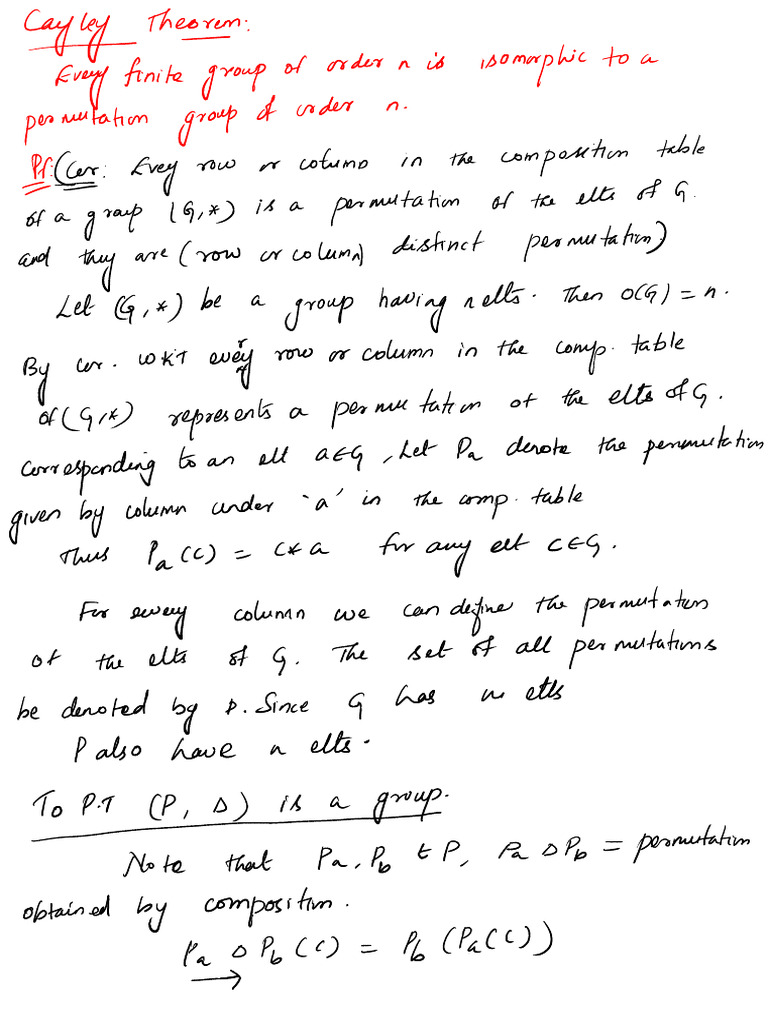 Cayley Theorem:
Every finite group of order n is isomorphic to a
permutation group of order n.
Pf: (Cor: Evey row or column in the composition table
of a group (G,*) is a permutation of the elts of G.
and they are (row or column) distinct permutation)
Let (G,*) be a group having n elts. Then O(G) = n.
By cor. WKT every row or column in the comp. table
of (G,*) represents a permutation of the elts of G.
Corresponding to an elt a∈G, Let Pa denote the permutation
given by column under 'a' in the comp. table
Thus Pa(c) = c*a for any elt c∈G.
For every column we can define the permutation
of the elts of G. The set of all permutations
be denoted by P. Since G has n elts
P also have n elts.
To P.T (P, Δ) is a group.
Note that Pa, Pb ∈ P, Pa Δ Pb = permutation
obtained by composition.
Pa Δ Pb (c) = Pb (Pa(c))